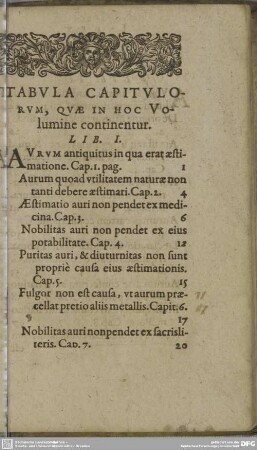 TABVLA CAPITVLO-
RVM, QVÆ IN HOC Vo-
lumine continentur.
LIB. I.
AVRVM antiquitus in qua erat æsti-
matione. Cap. 1. pag. 1
Aurum quoad vtilitatem naturæ non
tanti debere æstimari. Cap. 2. 4
Æstimatio auri non pendet ex medi-
cina. Cap. 3. 6
Nobilitas auri non pendet ex eius
potabilitate. Cap. 4. 12
Puritas auri, & diuturnitas non sunt
propriè causa eius æstimationis.
Cap. 5. 15
Fulgor non est causa, vt aurum præ-
cellat pretio aliis metallis. Capit. 6.
17
Nobilitas auri non pendet ex sacris li-
teris. Cap. 7. 20